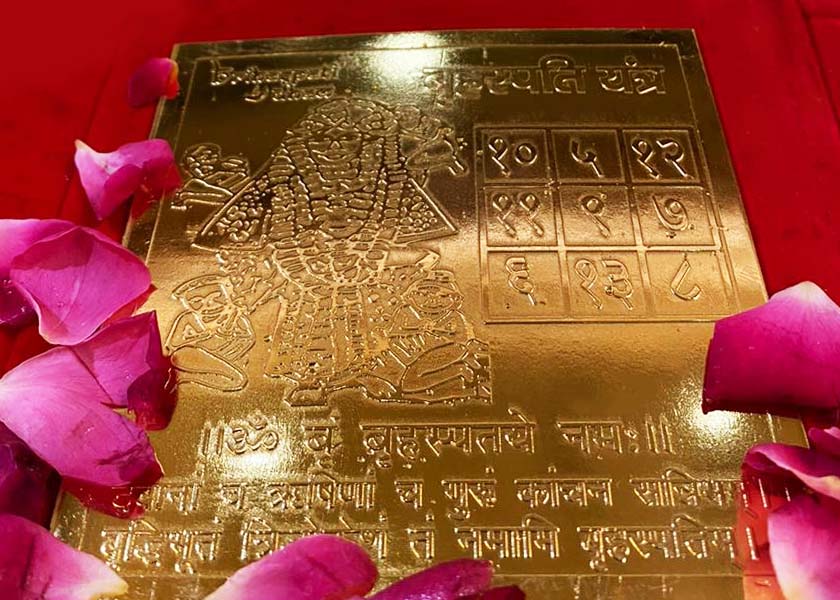 बृहस्पति यंत्र
१० ५ १२
११ ९ ७
६ १३ ८
॥ॐ बृं बृहस्पतये नमः॥
देवानां च ऋषिणां च गुरुं कांचन
बुद्धिभूतं तं नमामि बृहस्पतिम।